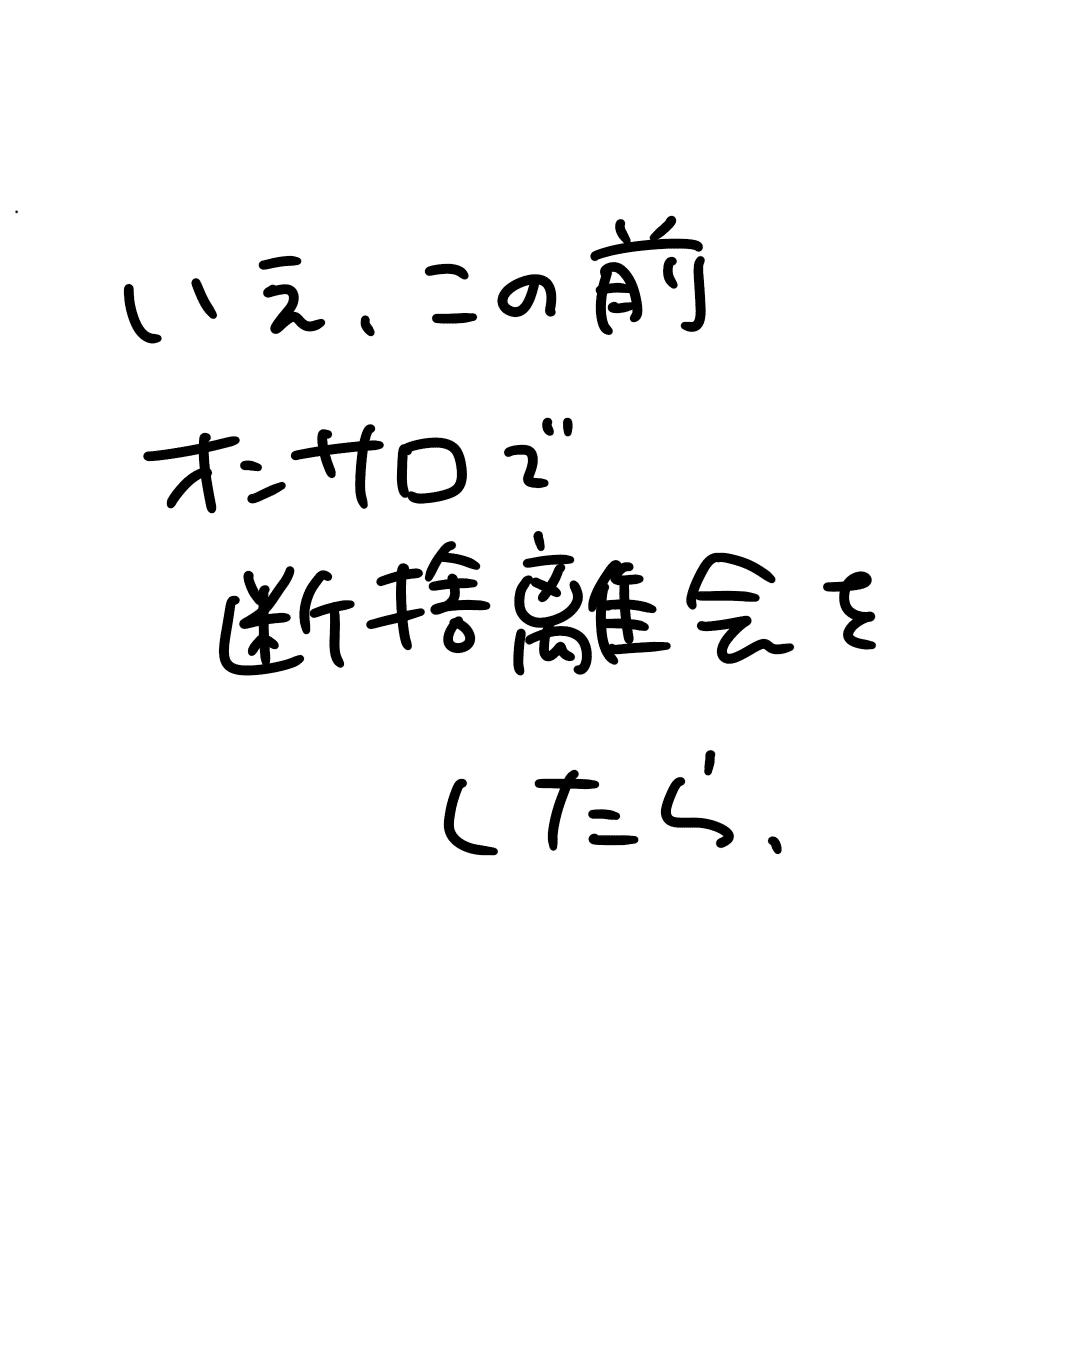 いえ、この前
オンサロで
断捨離会を
したら、